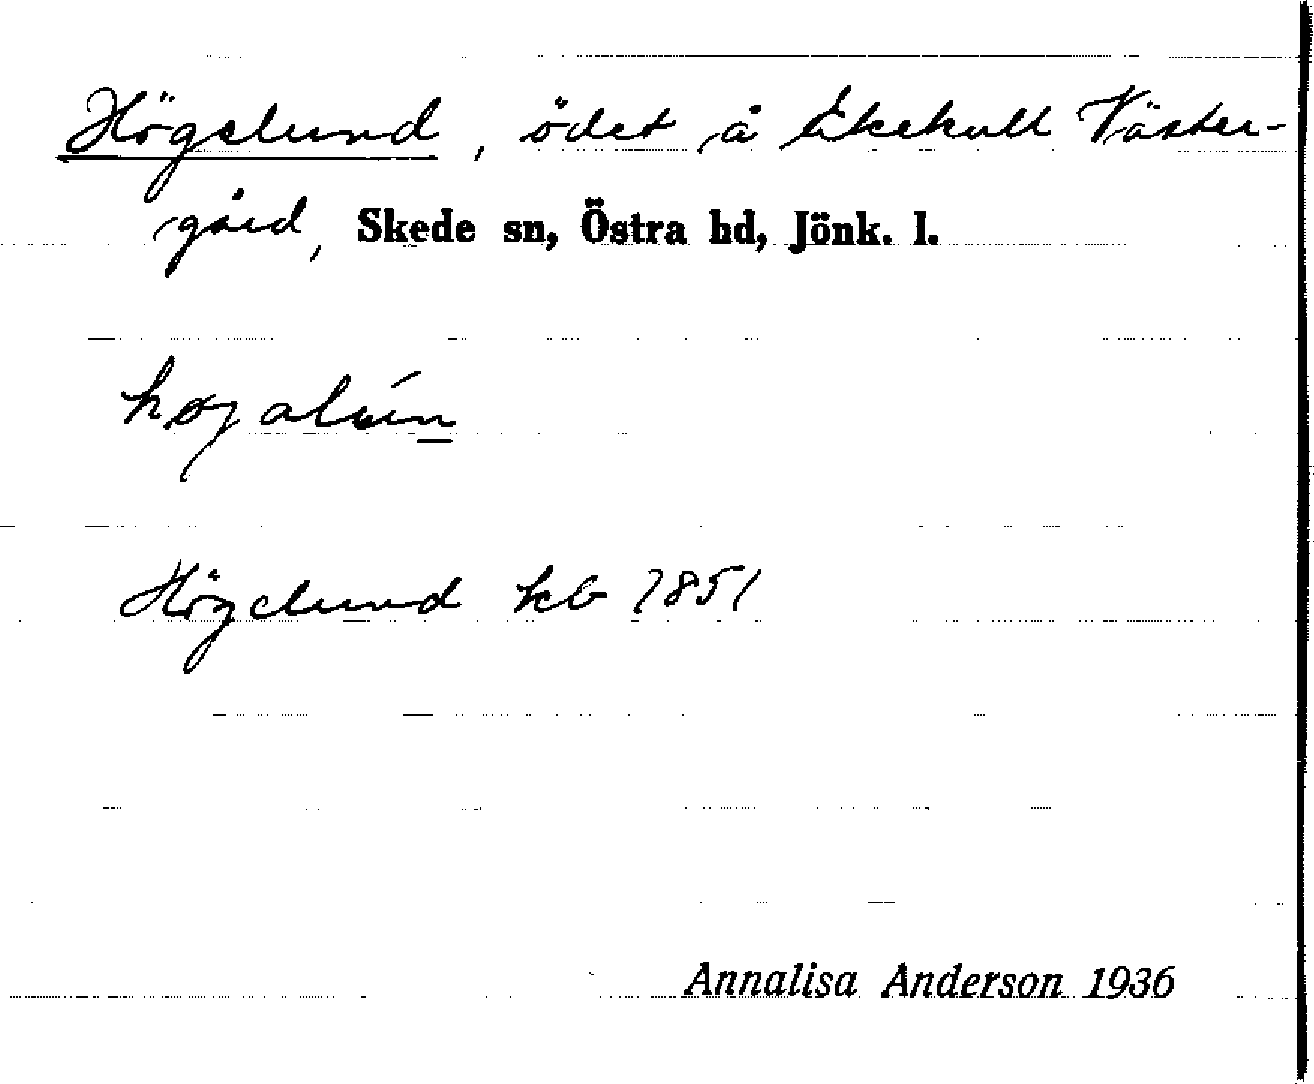 Högelund, ödet å Ekekull Väster-
gård, Skede sn, Östra hd, Jönk. l.
Högelund kb 1851
Annalisa Anderson 1936